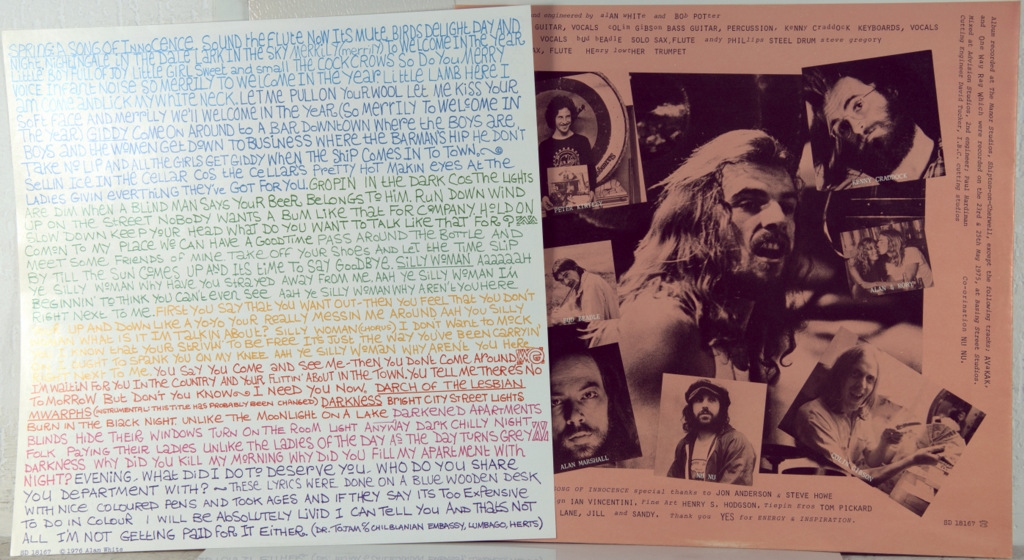 SPRING A SONG OF INNOCENCE. SOUND THE FLUTE NOW ITS MUTE. BIRDS DELIGHT DAY AND
NIGHTINGALE IN THE DALE LARK IN THE SKY MERRILY MERRILY TO WELCOME IN THE YEAR
LITTLE BOY FULL OF JOY LITTLE GIRL SWEET AND SMALL THE COCK CROWS SO DO YOU. MERRY
VOICE INFANT NOISE SO MERRILY TO WELCOME IN THE YEAR LITTLE LAMB HERE I
AM COME AND LICK MY WHITE NECK. LET ME PULL ON YOUR WOOL LET ME KISS YOUR
SOFT FACE AND MERRILY WE'LL WELCOME IN THE YEAR (SO MERRILY TO WELCOME IN
THE YEAR) GIDDY COME ON AROUND TO A BAR DOWNTOWN WHERE THE BOYS ARE
BOYS AND THE WOMEN GET DOWN TO BUSINESS WHERE THE BARMAN'S HIP HE DON'T
TAKE NO LIP AND ALL THE GIRLS GET GIDDY WHEN THE SHIP COMES IN TO TOWN,
SELLIN ICE IN THE CELLAR COS THE CELLAR'S PRETTY HOT MAKIN EYES AT THE
LADIES GIVIN EVERYTHING THEY'VE GOT FOR YOU. GROPIN IN THE DARK COS THE LIGHTS
ARE DIM WHEN A BLIND MAN SAYS YOUR BEER BELONGS TO HIM. RUN DOWN WIND
UP ON THE STREET NOBODY WANTS A BUM LIKE THAT FOR COMPANY. HOLD ON
SLOW DOWN KEEP YOUR HEAD WHAT DO YOU WANT TO TALK LIKE THAT FOR?
C'MON TO MY PLACE WE CAN HAVE A GOOD TIME PASS AROUND THE BOTTLE AND
MEET SOME FRIENDS OF MINE TAKE OFF YOUR SHOES AND LET THE TIME SLIP
BY TILL THE SUN COMES UP AND ITS TIME TO SAY GOODBYE. SILLY WOMAN AAAAAAH
YE SILLY WOMAN WHY HAVE YOU STRAYED AWAY FROM ME AAH YE SILLY WOMAN I'M
BEGINNIN' TO THINK YOU CAN'T EVEN SEE AAH YE SILLY WOMAN WHY AREN'T YOU HERE
RIGHT NEXT TO ME. FIRST YOU SAY THAT YOU WANT OUT-THEN YOU FEEL THAT YOU DON'T
UP AND DOWN LIKE A YOYO YOUR REALLY MESSIN ME AROUND AAH YOU SILLY
WOMAN WHAT IS IT I'M TALKIN ABOUT? SILLY WOMAN (CHORUS) I DON'T WANT TO MOCK
I KNOW THAT YOUR TO BE FREE ITS JUST THE WAY YOU'VE BEEN CARRYIN'
OUGHT TO SPANK YOU ON MY KNEE AAH YE SILLY WOMAN WHY AREN'T YOU HERE
TO ME. YOU SAY YOU COME AND SEE ME-THEN YOU DON'T COME AROUND
I'M WAITIN FOR YOU IN THE COUNTRY AND YOUR FLITTIN' ABOUT IN THE TOWN. YOU TELL ME THERE'S NO
TOMORROW BUT DON'T YOU KNOW I NEED YOU NOW. DARCH OF THE LESBIAN
MWARPHS (INSTRUMENTAL: THIS TITLE HAS PROBABLY BEEN CHANGED) DARKNESS BRIGHT CITY STREET LIGHTS
BURN IN THE BLACK NIGHT. UNLIKE THE MOONLIGHT ON A LAKE DARKENED APARTMENTS
BLINDS HIDE THEIR WINDOWS TURN ON THE ROOM LIGHT ANYWAY DARK CHILLY NIGHT
FOLK PAYING THEIR LADIES UNLIKE THE LADIES OF THE DAY AS THE DAY TURNS GREY
DARKNESS WHY DID YOU KILL MY MORNING WHY DID YOU FILL MY APARTMENT WITH
NIGHT? EVENING. WHAT DID I DO TO DESERVE YOU. WHO DO YOU SHARE
YOU DEPARTMENT WITH? THESE LYRICS WERE DONE ON A BLUE WOODEN DESK
WITH NICE COLOURED PENS AND TOOK AGES AND IF THEY SAY ITS TOO EXPENSIVE
TO DO IN COLOUR I WILL BE ABSOLUTELY LIVID I CAN TELL YOU AND THAT'S NOT
ALL I'M NOT GETTING PAID FOR IT EITHER. (DR. TOJAM % CHILBLANIAN EMBASSY, LUMBAGO, HERTS)
SD 18167 © 1976 Alan White
and engineered by ALAN WHITE and BOB POTTER
GUITAR, VOCALS COLIN GIBSON BASS GUITAR, PERCUSSION. KENNY CRADDOCK KEYBOARDS, VOCALS
VOCALS BUD BEADLE SOLO SAX, FLUTE andy PHILLIPS STEEL DRUM steve gregory
SAX, FLUTE HENRY LOWTHER TRUMPET
Album recorded at The Manor Studios, Shipton-on-Cherwell, except the following tracks; AVAKAK,
and One Way Rag which were recorded on the 23rd & 25th May 1975, at Basing Street Studios.
Mixed at Advision Studios, 2nd engineer; Paul Hardiman
Cutting Engineer David Tucker, I.B.C. cutting studios
Co-ordination NU NU.
PETER KIRTLEY
KENNY CRADDOCK
ALAN & HENRY
BUD BEADLE
ALAN MARSHALL
NU NU
SONG OF INNOCENCE special thanks to JON ANDERSON & STEVE HOWE
IAN VINCENTINI. Fine Art HENRY S. HODGSON. Tiepin Eros TOM PICKARD
LANE, JILL and SANDY. Thank you YES for ENERGY & INSPIRATION.
SD 18167